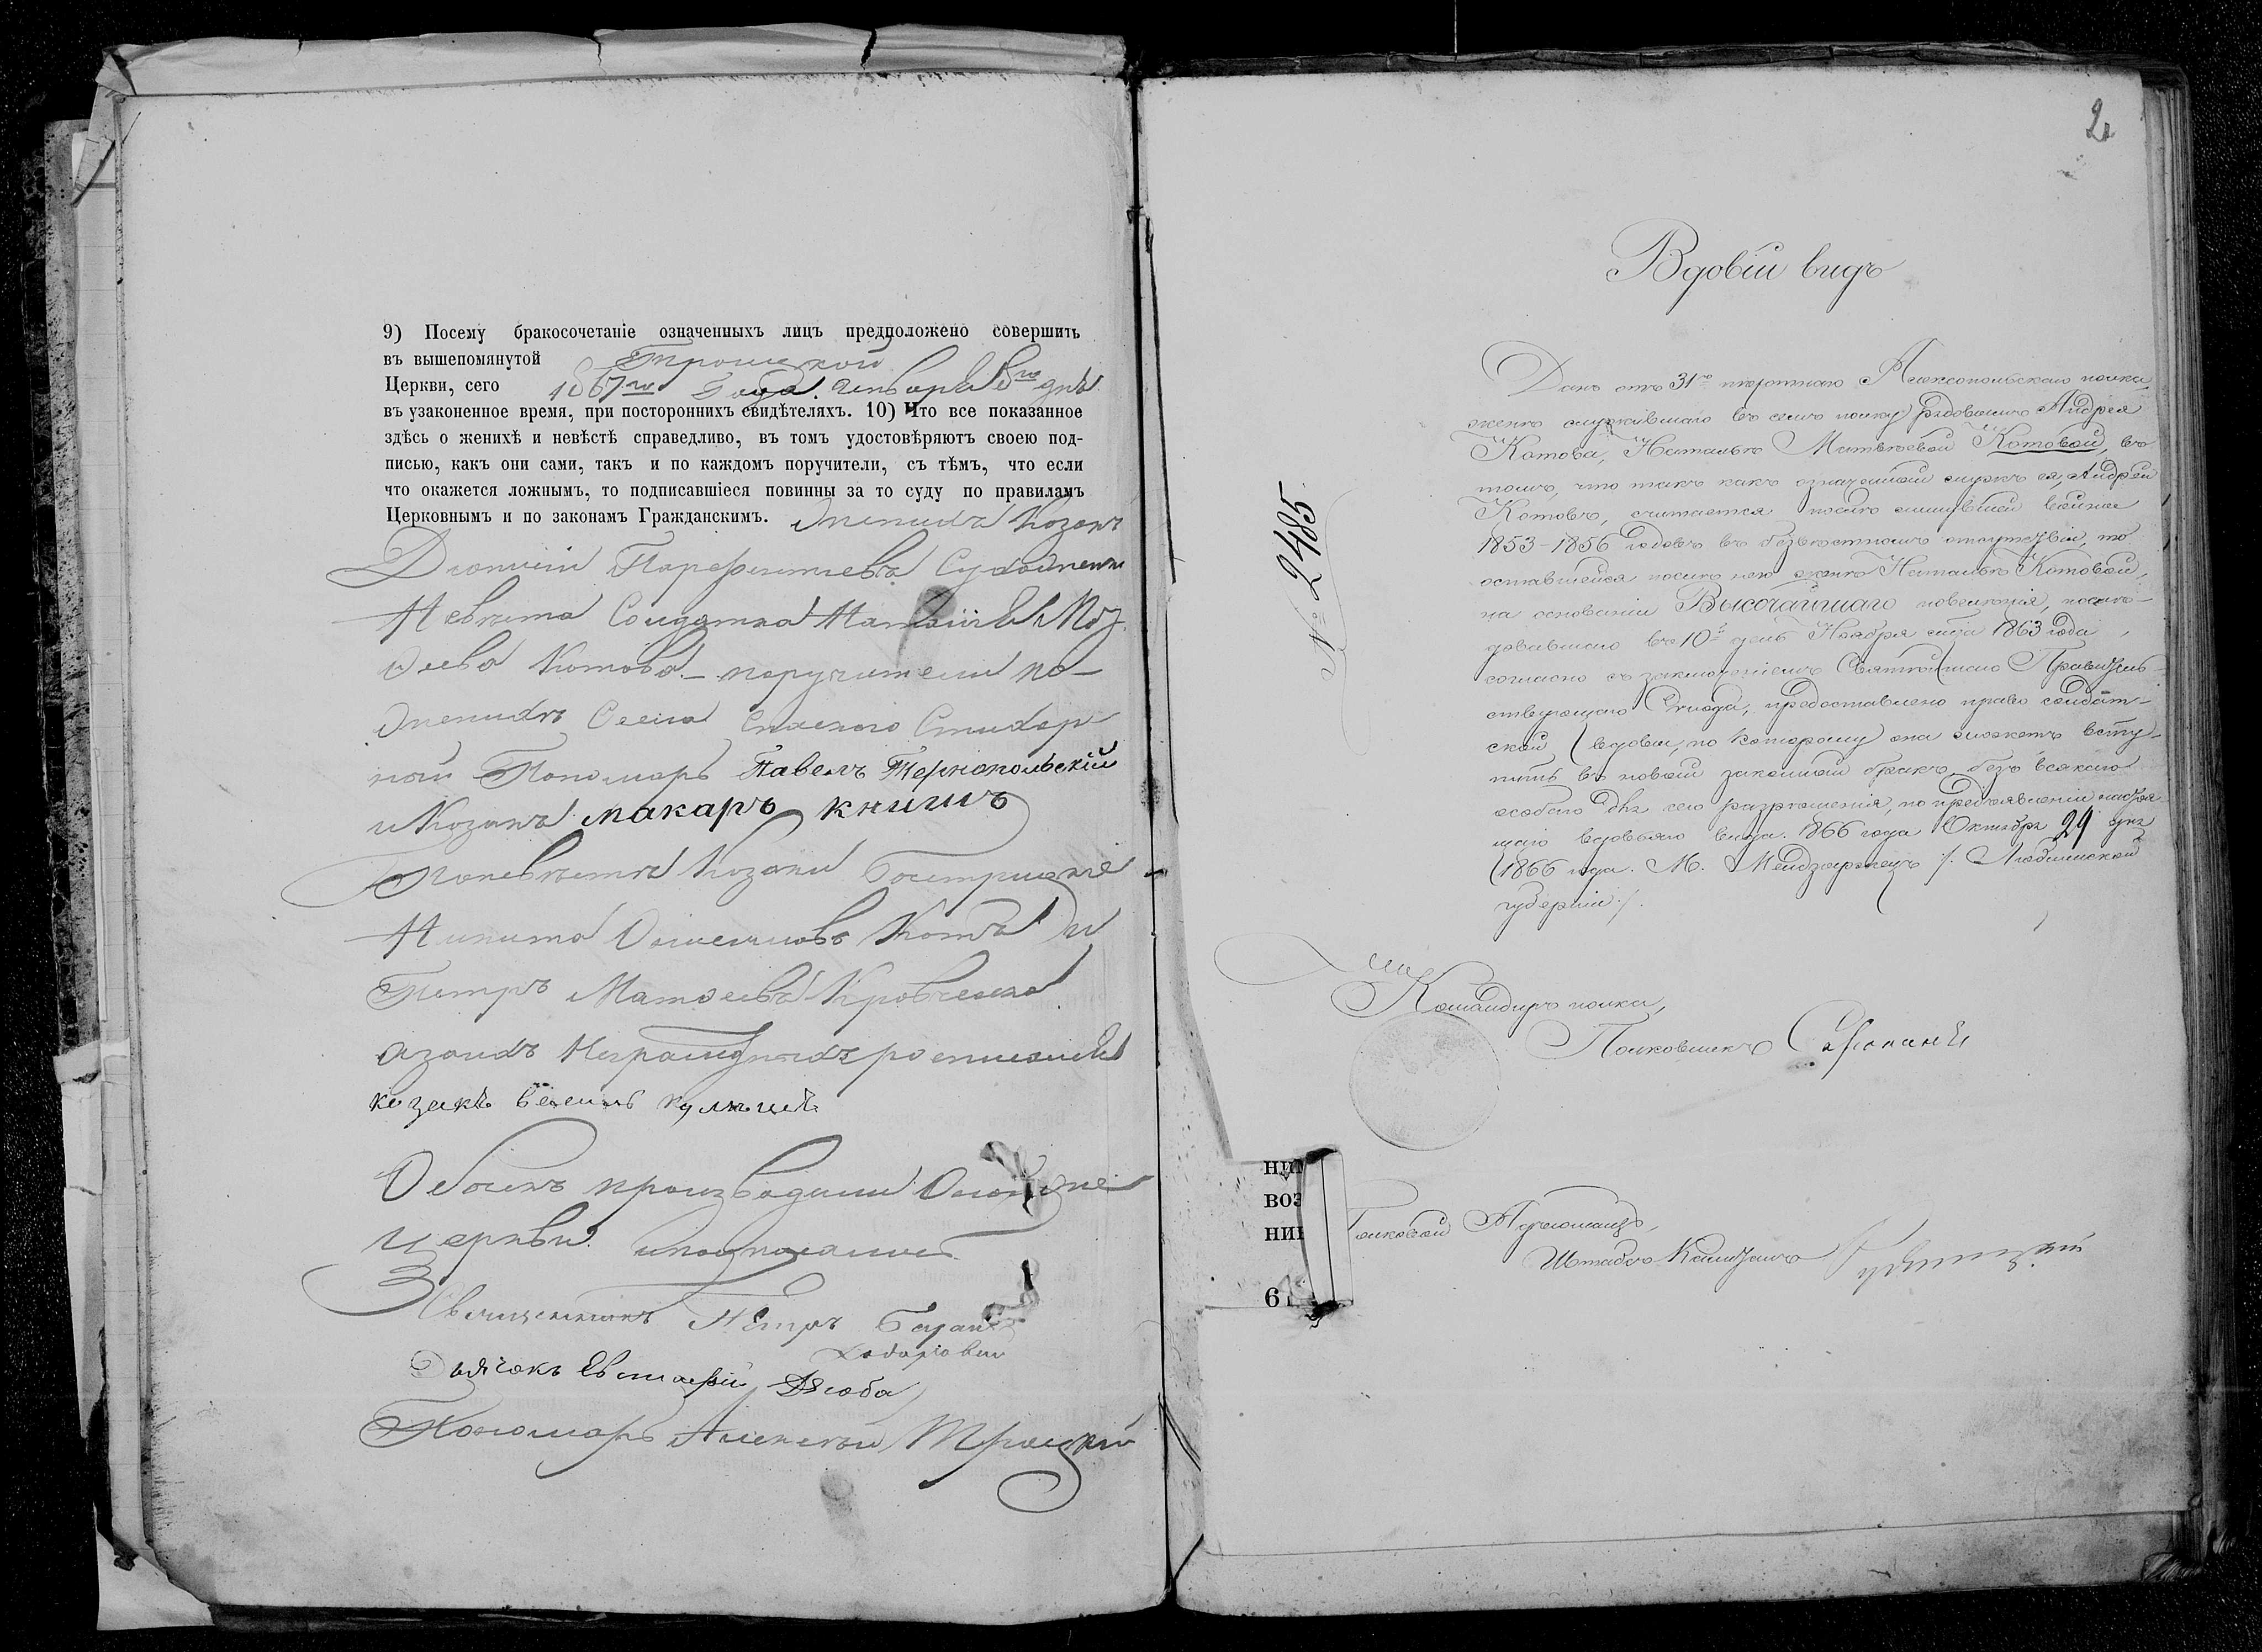 9) Посему бракосочетаніе означенныхъ лицъ предположено совершить
въ вышепомянутой Троицкой
Церкви, сего 1867го Года. Генваря 8го дня
въ узаконенное время, при постороннихъ свидѣтеляхъ. 10) Что все показанное
здѣсь о женихѣ и невѣстѣ справедливо, въ томъ удостовѣряютъ своею под-
писью, какъ они сами, такъ и по каждомъ поручители, съ тѣмъ, что если
что окажется ложнымъ, то подписавшіеся повинны за то суду по правиламъ
Церковнымъ и по законамъ Гражданскимъ. Женихъ Козакъ
Парфентіевъ
Невѣста Солдатка
Котова – поручители по
Женихѣ Села Спаского Стихар
ный Пономарь Павелъ Тернопольскій
и Козакъ макаръ книшъ
По невѣстѣ Козаки
Никита Котъ и
Петръ Матвеевъ Кравченко
азаихъ Неграмотныхъ росписался
козакъ
Обыскъ производили
церкви
Священникъ Петръ Базан
Дьячокъ Евстафій Дзюба
Пономарь Алексѣй Троцкій
2
Вдовій видъ
№ 2485
Данъ отъ 31го пѣхотнаго Алексопольскаго полка,
женѣ служившаго въ семъ полку рядовымъ Андрея
Котова, Натальѣ Матвѣевой Котовой, въ
томъ, что такъ какъ означенный мужъ ея Андрей
Котовъ, считается послѣ минувшей войны
1853-1856 годовъ въ безвѣстномъ отсутствіи, то
оставшейся послѣ него женѣ Натальѣ Котовой,
на основаніи Высочайшаго повелѣнія, послѣ-
довавшаго въ 10й день Ноября сего 1863 года,
согласно съ заключеніемъ Святѣйшаго Правитель-
ствующаго Сѵнода, предоставлено право солдат-
ской вдовы, по которому она можетъ всту-
пить въ новый законный бракъ, безъ всякаго
особаго для сего разрѣшенія, по предъявленіи настоя-
щаго вдовьяго вида. 1866 года Октября 29 дня
1866 года. М. Мендзыржецъ /. Люблинской
губерніи /.
Командиръ полка,
Полковникъ
Полковой Адъютантъ,
Штабсъ-Капитанъ
ни
воз
ни
6